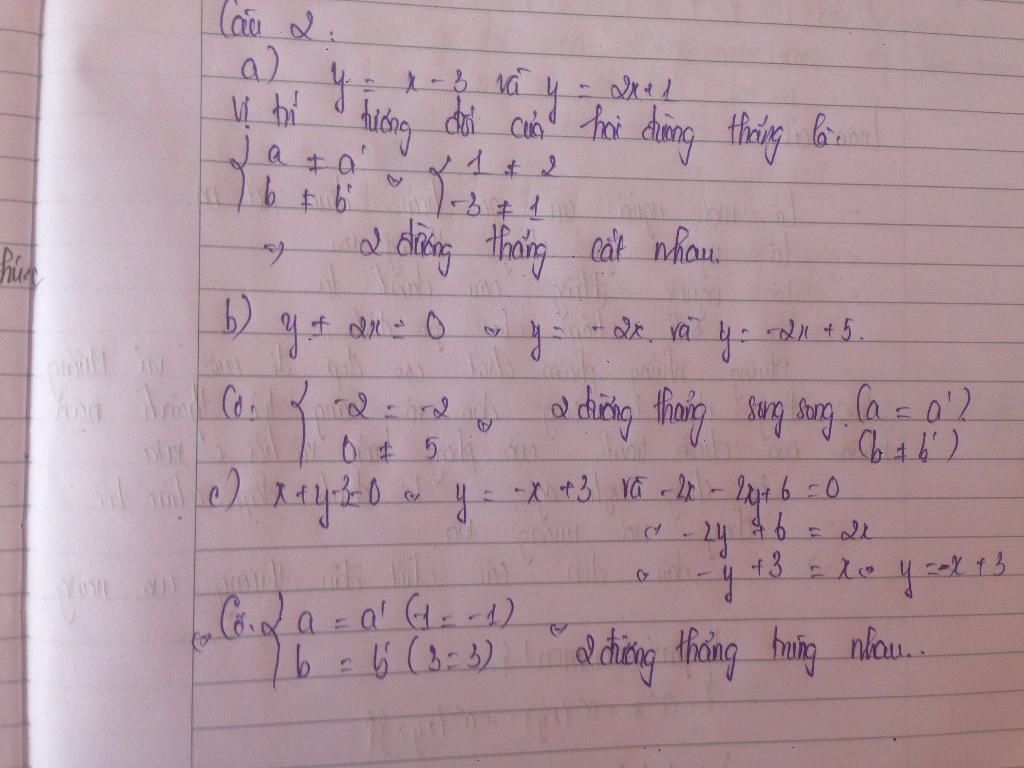 Câu 2:
a) y = x - 3 và y = 2x+1
Vị trí tương đối của hai đường thẳng là:
{ a ≠ a' ⇔ { 1 ≠ 2
{ b ≠ b' { -3 ≠ 1
=> 2 đường thẳng cắt nhau.
b) y + 2x = 0 ⇔ y = -2x và y = -2x + 5.
Có: { -2 = -2 ⇔ 2 đường thẳng song song. (a = a')
{ 0 ≠ 5 (b ≠ b')
c) x+y-3=0 ⇔ y = -x +3 và -2x - 2y+6 =0
⇔ -2y + 6 = 2x
⇔ -y +3 = x ⇔ y =-x + 3
⇔ Có: { a = a' (-1 = -1) ⇔ 2 đường thẳng trùng nhau..
{ b = b' (3 = 3)